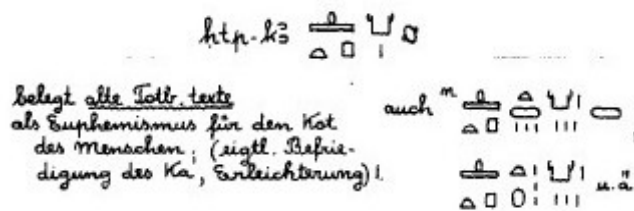 ḥtp-kꜣ 𓊵𓏏𓊪𓂓𓏤
belegt alte Totb. texte
als Euphemismus für den Kot
des Menschen; (eigtl. Befrie-
digung des Ka, Erleichterung)
auch 𓊵𓏏𓊪 𓏏 𓏥 𓂓 𓏥
𓊵𓏏𓊪 𓏏 𓂓 𓏥 u.ä